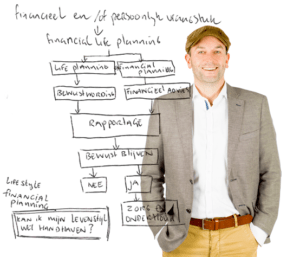 financieel en/of persoonlijk vraagstuk
financial life planning
LIFE planning
FINANCIAL planning
BEWUSTWORDING
FINANCIEEL ADVIES
RAPPORTAGE
BEWUST BLIJVEN
NEE
JA
LIFESTYLE
financial
planning
KAN IK MIJN LEVENSTIJL
HANDHAVEN?
ZORG EN
ONDERHOUD